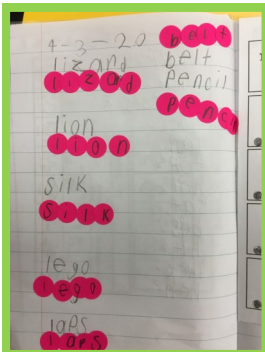 4-3-20
lizard
lizard
lion
lion
silk
silk
lego
lego
laps
laps
belt
belt
pencil
pencil